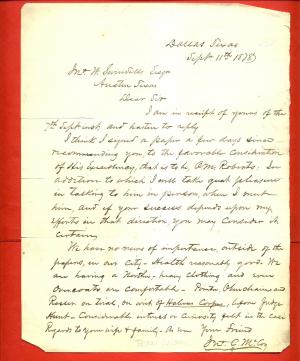 Dallas Texas
Sept 11th 1878
Jno W. Swindells Esqr
Austin Texas
Dear Sir
I am in receipt of yours of the
7th Sept inst and hasten to reply
I think I signed a paper a few days since
recommending you to the favorable consideration
of His Excellency, that is to be O.M. Roberts, In
addition to which I will take great pleasure
in talking to him in person, when I meet
him, and if your success depends upon my
efforts in that direction, you may consider it
certain,
We have no news of importance outside of the
papers, in our City - Health reasonably good. We
are having a Norther - heavy clothing and even
overcoats are comfortable -
on trial, on writ of Habeas Corpus, before Judge
Hunt - Considerable interest or curiosity felt in the case
Regards to your wife & family - As ever Your Friend
Jno. C. McCoy